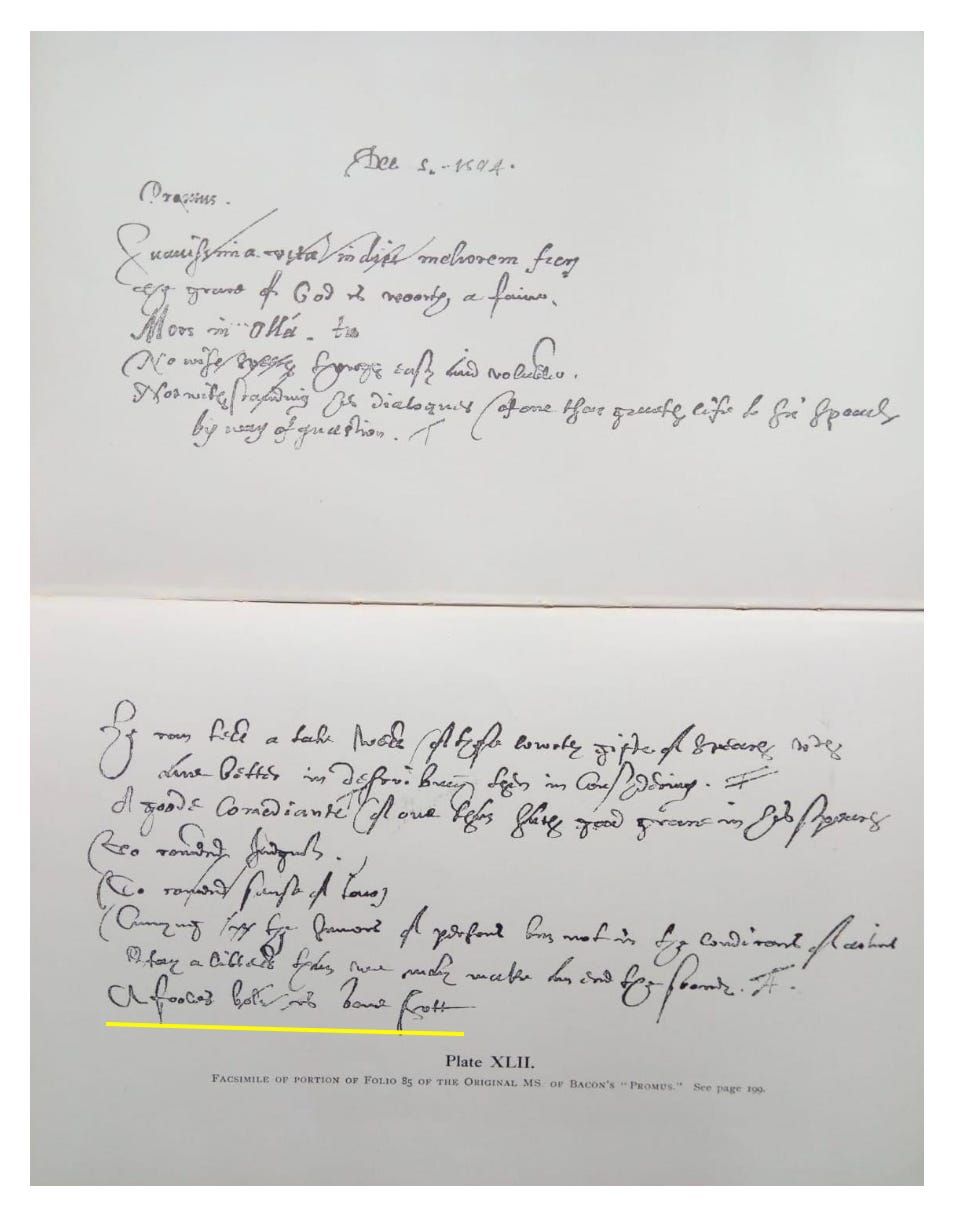 Dec 5. 1594.
Promus.
Suauissima vita indies meliorem fieri
The grace of God is woorth a faire.
Mors in olla.
No wise speech though easy and voluble.
Notwithstanding his dialogues (of one that giueth life to his speach
by way of question.
He can tell a tale well (of those cowrtly gifts of speach wch
are better in describing then in consydering.
A goode Comediante (of one that hath good grace in his speach
(To commend Judgmts.
(To commend sense of law
(Cunnyng in the humors of persons but not in the condicons of actions
Stay a littell that we may make an end the sooner.
A fooles bolt is soone shott
Plate XLII.
FACSIMILE OF PORTION OF FOLIO 85 OF THE ORIGINAL MS. OF BACON'S "PROMUS." See page 199.